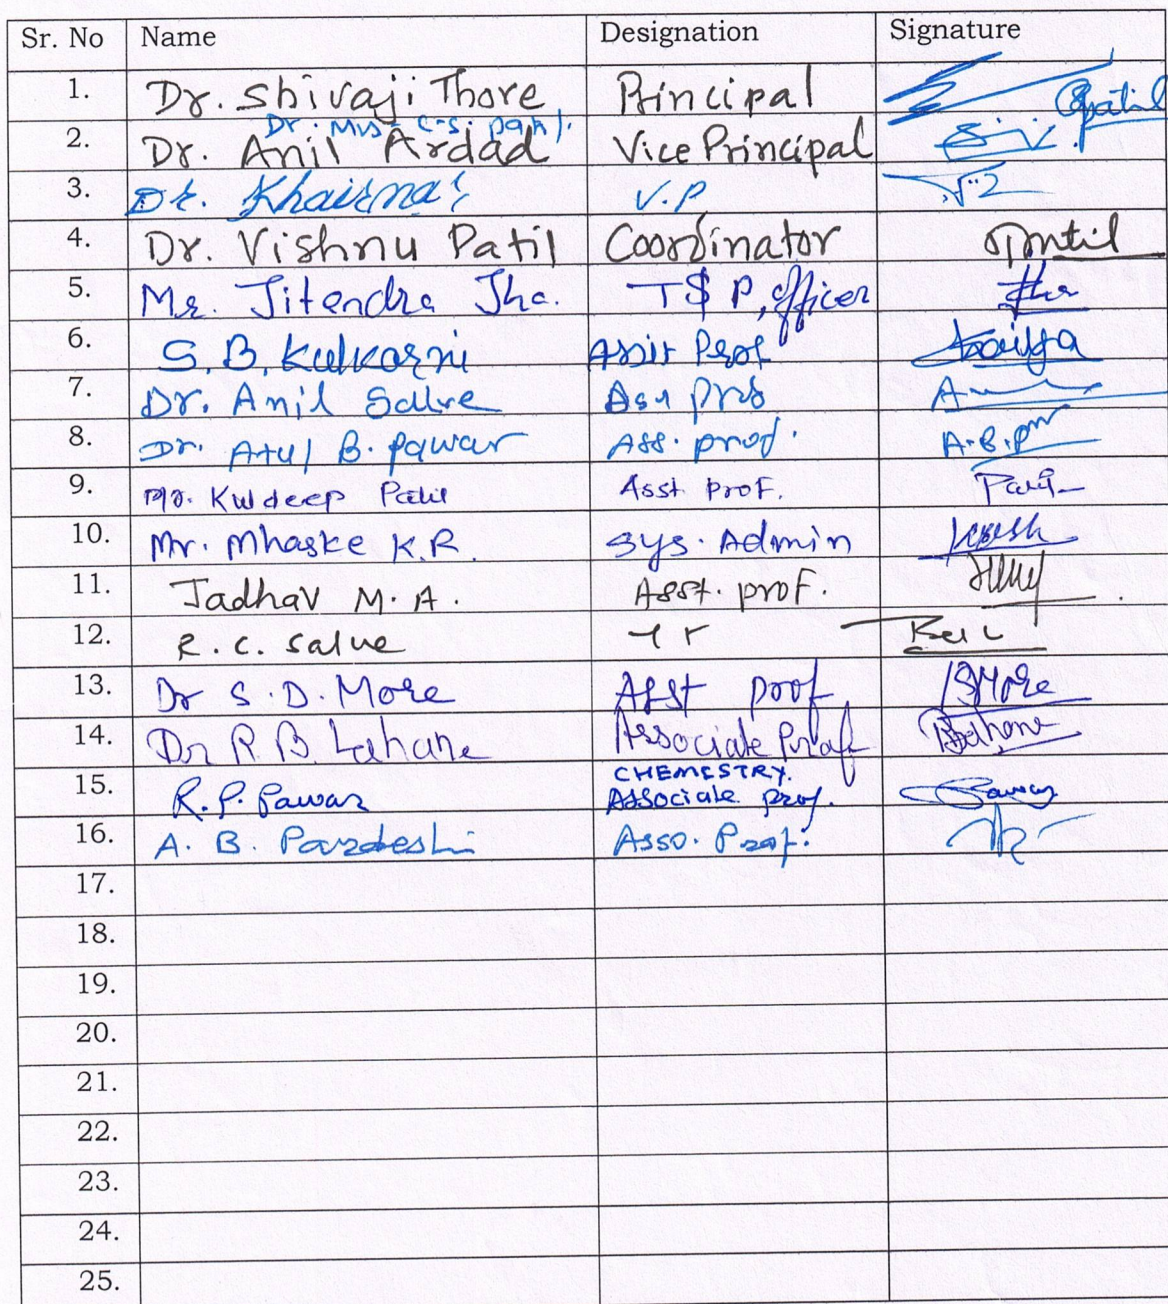 Sr. No Name Designation Signature
1. Dr. Shivaji Thore Principal Cpatil
Dr. Mrs. C.S. Patil.
2. Dr. Anil Ardad Vice Principal
3. Dr. Khairnar V.P
4. Dr. Vishnu Patil Coordinator
5. Mr. Jitendra Jha. T$P, officer Jha
6. S. B. Kulkarni Assit Prof
7. Dr. Anil Salve Ass Pro
8. Dr. Atul B. Pawar Ass. prof. A.B.
9. Mr. Kuldeep Patil Asst Prof. Patil
10. Mr. Mhaske K.R. Sys. Admin
11. Jadhav M. A. Asst. prof.
12. R. C. Salve
13. Dr S. D. More Asst prof SMore
14. Dr R. B. Lahane Associate Prof Lahane
CHEMESTRY.
15. R. P. Pawar Associate prof. Pawar
16. A. B. Pardeshi Asso. Prof.
17.
18.
19.
20.
21.
22.
23.
24.
25.